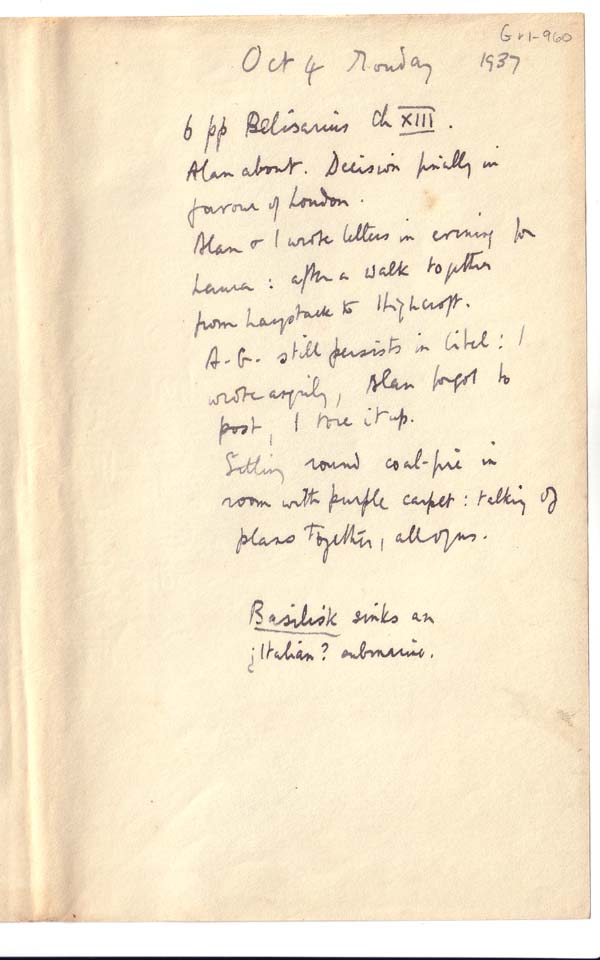 Gr1-960
Oct 4 Monday 1937
6 pp Belisarius Ch XIII.
Alan about. Decision finally in
favour of London.
Alan & I wrote letters in evening for
Laura: after a walk together
from Haystack to Highcroft.
A.G. still persists in libel: I
wrote angrily, Alan forgot to
post, I tore it up.
Sitting round coal-fire in
room with purple carpet: talking of
plans together, all of us.
Basilisk sinks an
¿Italian? submarine.